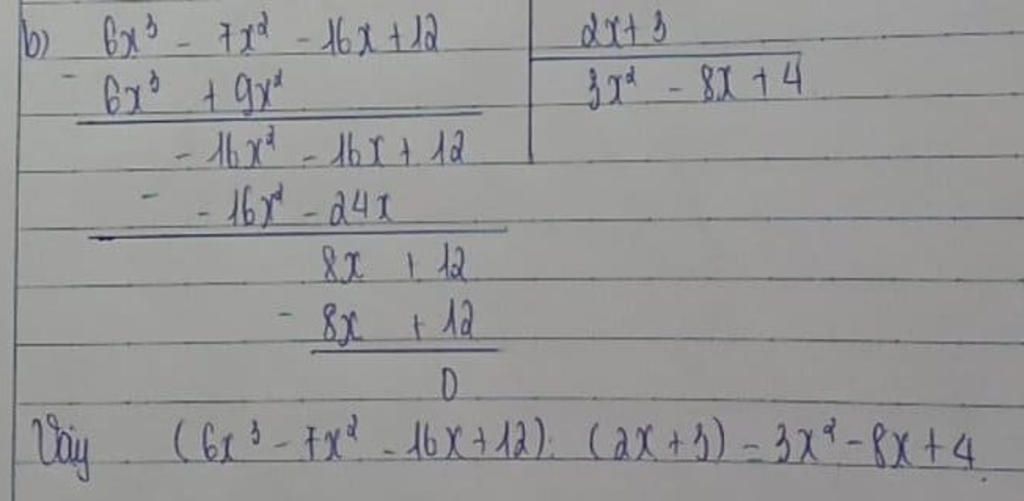 b) 6x³ - 7x² - 16x + 12 | 2x + 3
- 6x³ + 9x² | 3x² - 8x + 4
- 16x² - 16x + 12
- - 16x² - 24x
8x + 12
- 8x + 12
0
Vậy (6x³ - 7x² - 16x + 12) : (2x + 3) = 3x² - 8x + 4.